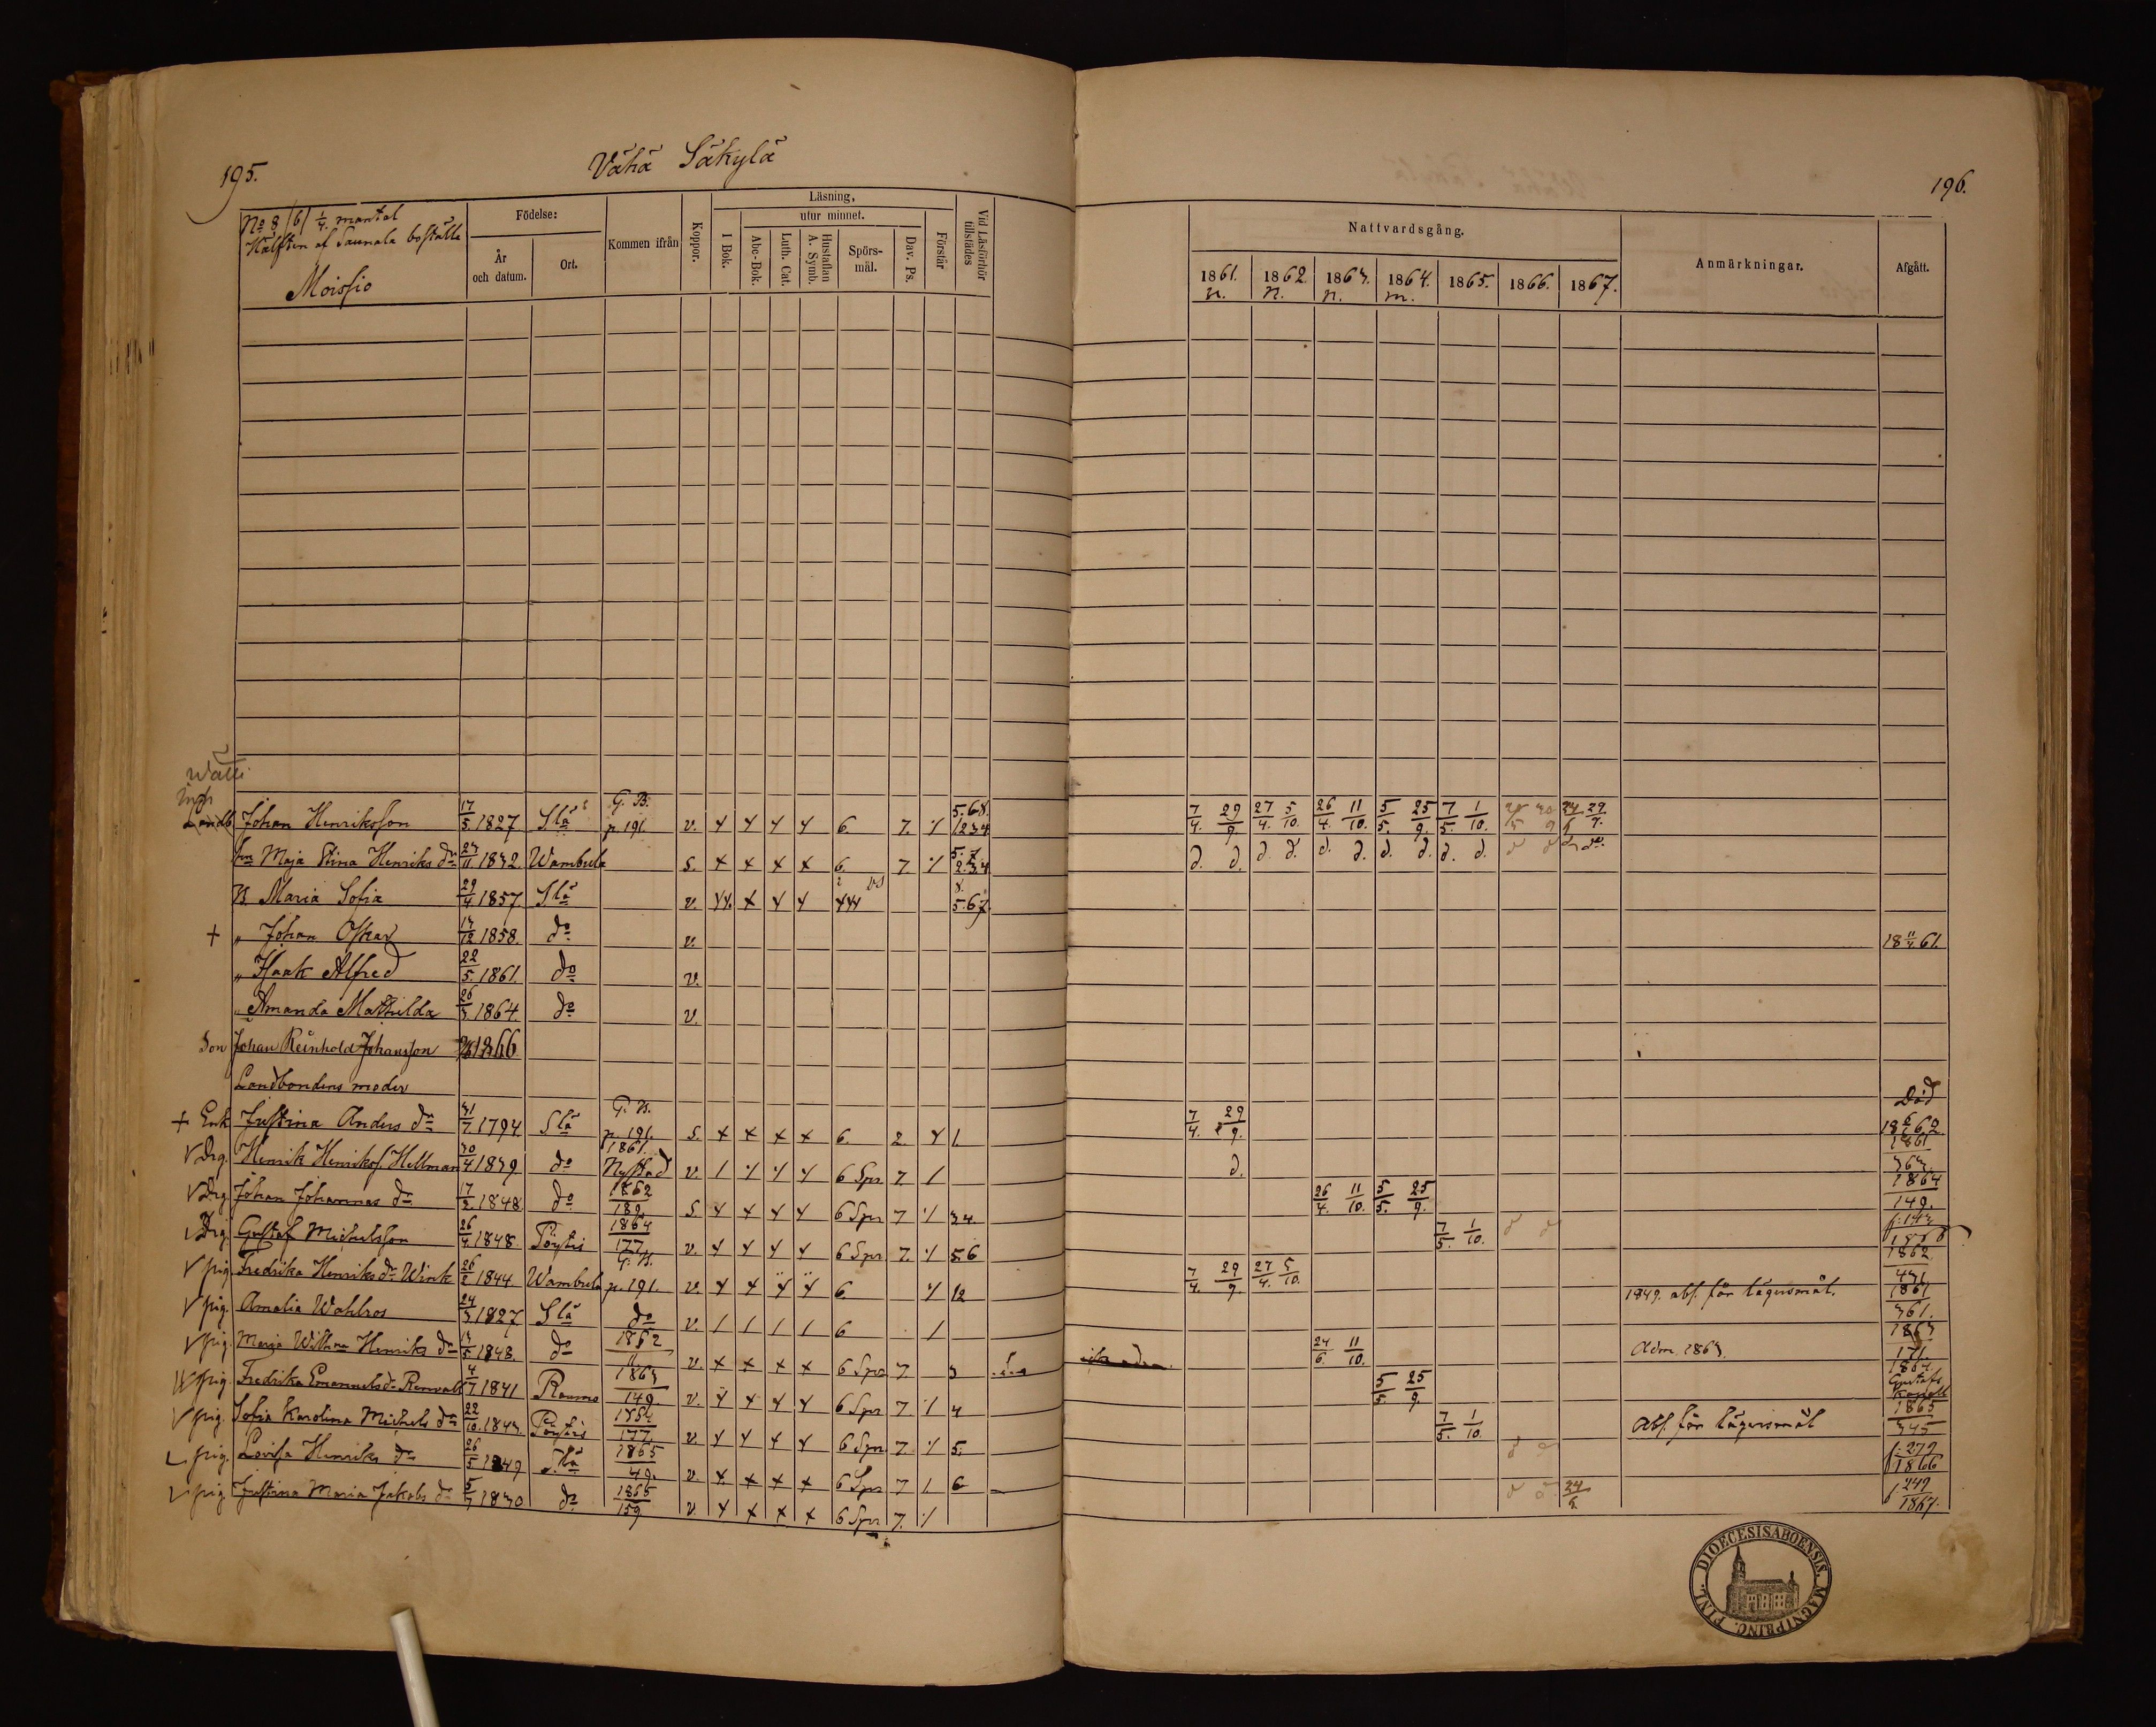 195.
Vähä Säkylä
196.
No 8 (6) 1/4 mantal
Hälften af Saunala boställe
Moissio
Födelse:
År och datum.
Ort.
Kommen ifrån
Koppor.
Läsning,
I Bok.
utur minnet.
Abc-Bok.
Luth. Cat.
Hustaflan A. Symb.
Spörs-mål.
Dav. Ps.
Förstår
Vid Läsförhör tillstädes
Nattvardsgång.
1861. 1862. 1863. 1864. 1865. 1866. 1867.
n. n. n. m.
Anmärkningar.
Afgått.
Landb. Johan Henriksson 17/5 1827 Slä G. B. p. 191. v. 6. 7. 5.6.8. 1234 7/4. 29/9. 27/4. 5/10. 26/4. 11/10. 5/5. 25/9. 7/5. 1/10.
Maja Stina Henriks dr 23/11 1832. Wambula s. 6. 7 2.3.4 d. d. d. d. d. d. d. d. d. d.
B. Maria Sofia 29/4 1857. Slä v. 5.6.7.
+ „ Johan Oskar 13/12 1858. do v. 18 11/4 61.
„ Isaak Alfred 22/5. 1861. do v.
„ Amanda Mathilda 26/3 1864. do v.
Son Johan Reinhold Johansson 1866
Landbondens moder
+ Enk. Justina Anders dr 31/7 1794 Slä G. B. p. 191. s. 6. 2. 1 7/4. 29/9. Död 1862
Drg. Henrik Henrikss. Hellman 30/4 1839 do 1861. Nystad v. 6 Spr 7 d. 1861 363.
Drg. Johan Johannes dr 17/2. 1848. do 1862 189. s. 6 Spr 7 34. 26/4. 11/10. 5/5. 25/9. 1864 149.
Drg. Gustaf Michelsson 26/4 1848. Pöytis 1864 177. v. 6 Spr 7. 5.6 7/5. 1/10.
pig. Fredrika Henriks dr Wink 26/2 1844 Wambula G. B. p. 191. v. 6. 12 7/4. 29/9. 27/4. 5/10. 1862 431
pig. Amalia Wahlros 24/3 1827 Slä do v. 6 1849. abs. för lägersmål. 1861 361.
pig. Maria Wilhma Henriks dr 13/5 1848. do 1862 v. 6 Spr 7 3 24/6. 11/10. Adm. 1863. 1863 171.
pig. Fredrika Emanuels dr Renvall 4/7 1841 Raumo 1863 149. v. 6 Spr 7. 4 5/5. 25/9. 1864. Gustafs
pig. Sofia Karolina Michels dr 22/10. 1843. Pöytis 1864 177. v. 6 Spr 7. 5. 7/5. 1/10. Abs. för lägersmål 1865 345
pig. Lovisa Henriks dr 26/5 1849 Slä 1865 49. v. 6 Spr 7 6 f. 279 1866
pig. Justina Maria Jakobs dr 5/7 1830 do 1865 159 v. 6 Spr 7. 24/6. f. 249 1867.
DIOECESIS ABOENSIS. MAGNI PRINC. FINL.